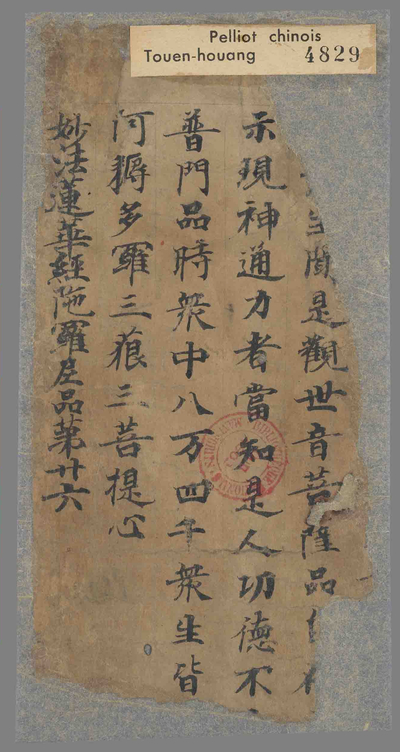 Pelliot chinois
Touen-houang 4829
聞是觀世音菩薩品
示現神通力者當知是人功德不
普門品時眾中八万四千眾生皆
阿耨多羅三藐三菩提心
妙法蓮華經陁羅尼品第廿六